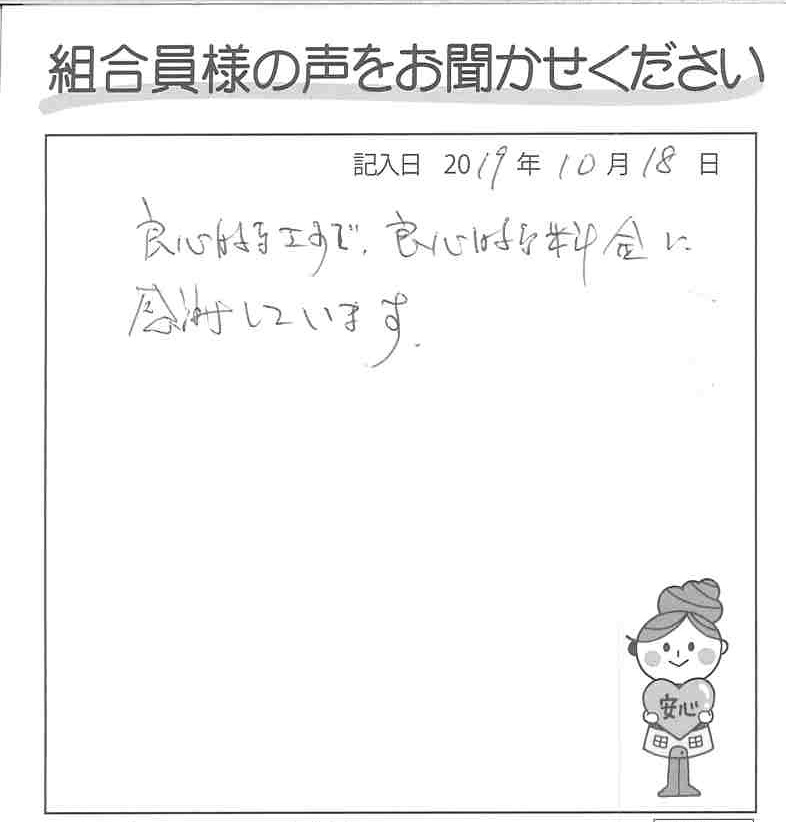 組合員様の声をお聞かせください
記入日 2019年10月18日
良心的な工事で、良心的な料金に
感謝しています.
安心